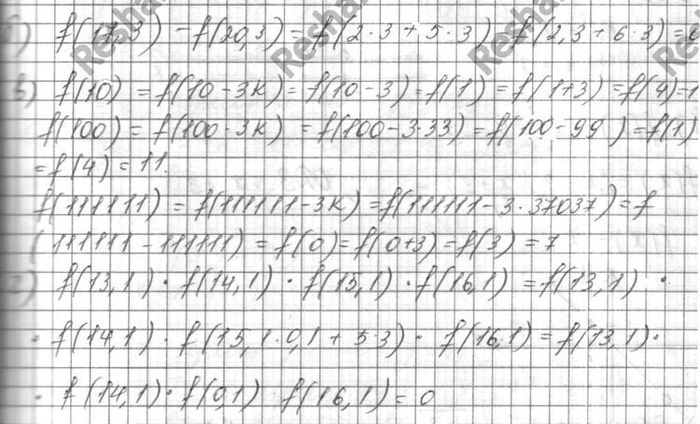 б) f(17,3) - f(20,3) = f(2·3 + 5·3) f(2,3 + 6·3) = 0
в) f(10) = f(10-3k) = f(10-3) = f(1) = f(1+3) = f(4) = 1
f(100) = f(100-3k) = f(100-3·33) = f(100-99) = f(1)
= f(4) = 11.
f(111111) = f(111111-3k) = f(111111-3·37037) = f
(111111-111111) = f(0) = f(0+3) = f(3) = 7
г) f(13,1) · f(14,1) · f(15,1) · f(16,1) = f(13,1) ·
· f(14,1) · f(15,1·0,1 + 5·3) · f(16,1) = f(13,1) ·
· f(14,1) · f(0,1) f(16,1) = 0